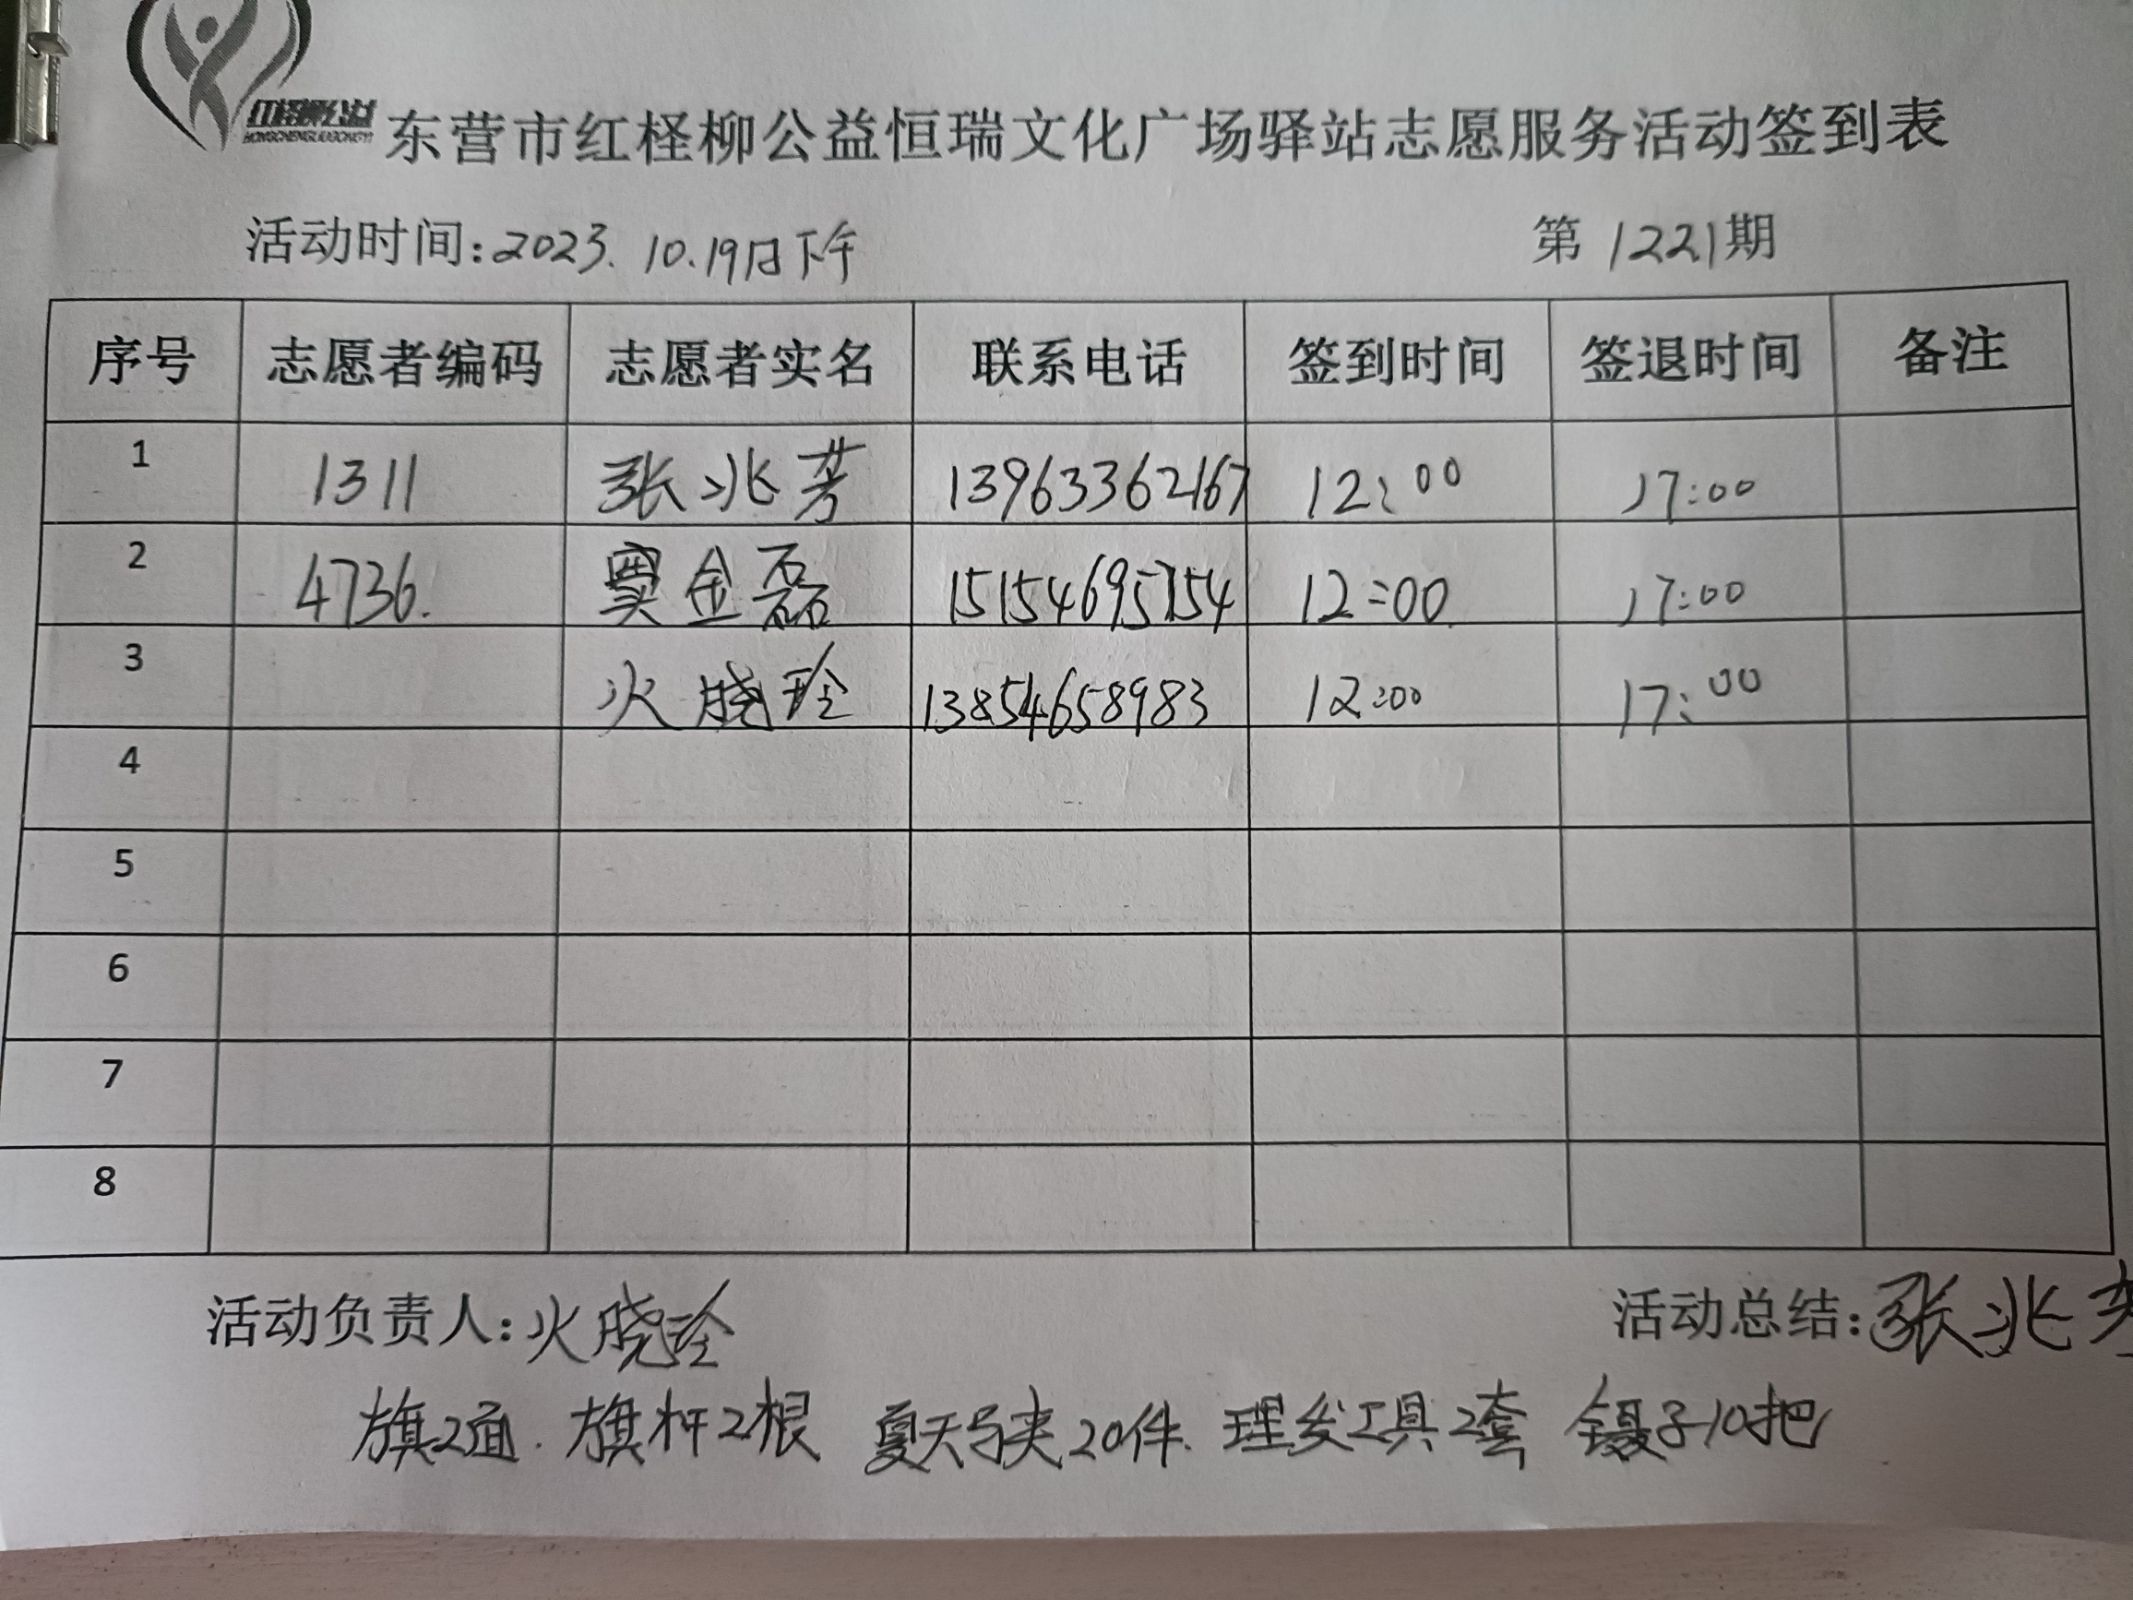 红柽柳公益
HONGCHENGLIUGONGYI
东营市红柽柳公益恒瑞文化广场驿站志愿服务活动签到表
活动时间:2023.10.19日下午 第1221期
序号 志愿者编码 志愿者实名 联系电话 签到时间 签退时间 备注
1 1311 张兆芳 13963362167 12:00 17:00
2 4736. 窦金磊 15154695754 12:00 17:00
3 火晓玲 13854658983 12:00 17:00
4
5
6
7
8
活动负责人:火晓玲 活动总结:张兆芳
旗2面.旗杆2根 夏天马夹20件.理发工具2套 镊子10把